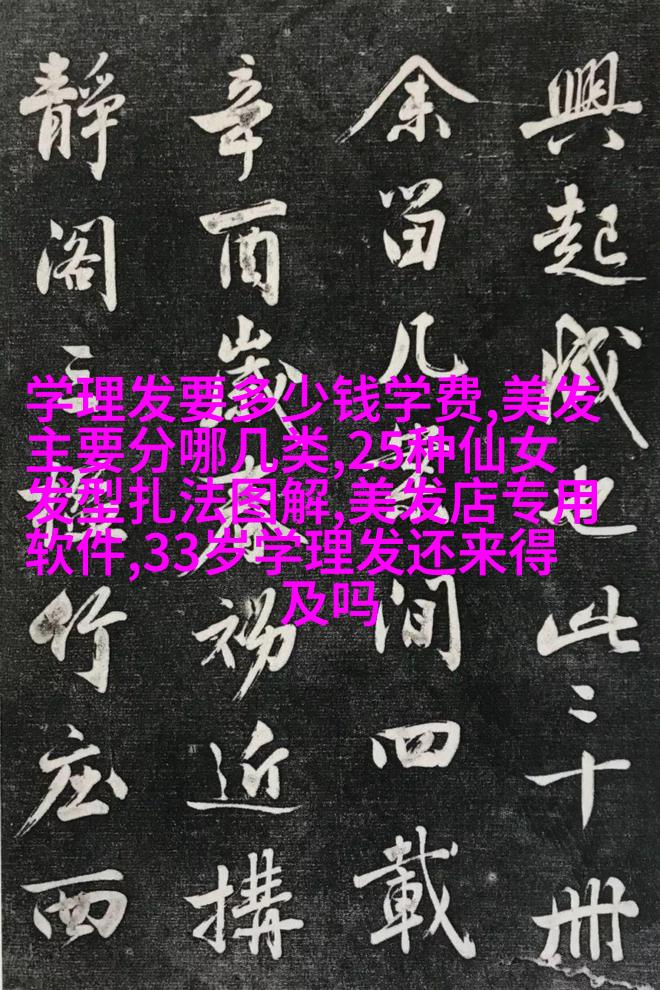 興起成也此二十冊
余留几案间四載
辛酉歲近搆
靜阁竹庄西
学理发要多少钱学费,美发
主要分哪几类,25种仙女
发型扎法图解,美发店专用
软件,33岁学理发还来得
及吗